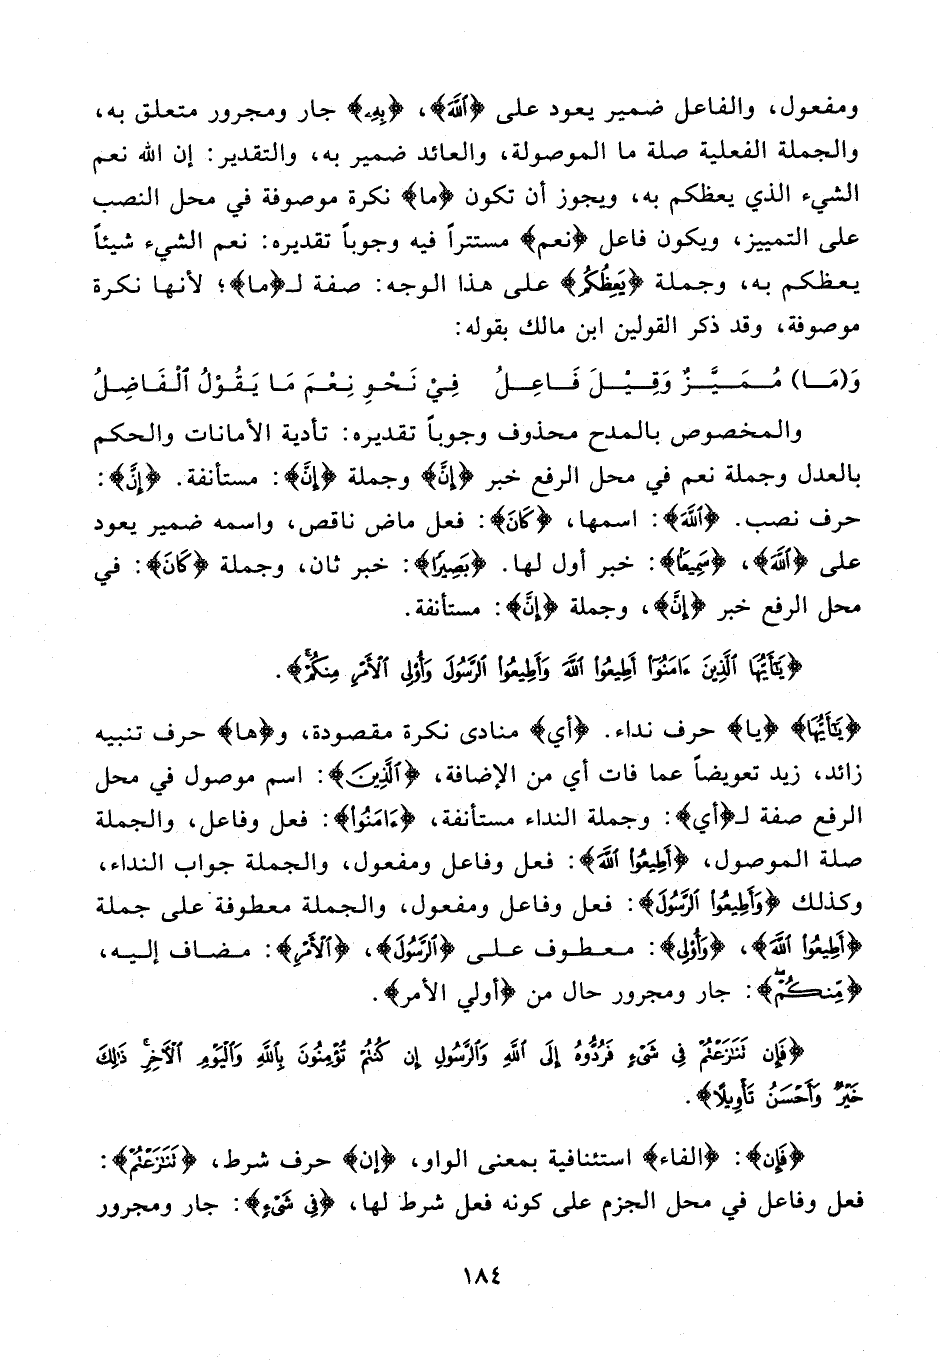 ومفعول، والفاعل ضمير يعود على ﴿ٱللَّهَ﴾، ﴿بِهِۦ﴾ جار ومجرور متعلق به،
والجملة الفعلية صلة ما الموصولة، والعائد ضمير به، والتقدير: إن الله نعم
الشيء الذي يعظكم به، ويجوز أن تكون ﴿ما﴾ نكرة موصوفة في محل النصب
على التمييز، ويكون فاعل ﴿نعم﴾ مستتراً فيه وجوباً تقديره: نعم الشيء شيئاً
يعظكم به، وجملة ﴿يَعِظُكُم﴾ على هذا الوجه: صفة لـ﴿ما﴾؛ لأنها نكرة
موصوفة، وقد ذكر القولين ابن مالك بقوله:
وَ(مَـا) مُـمَـيِّـزٌ وَقِـيْـلَ فَـاعِـلُ فِيْ نَـحْـوِ نِـعْـمَ مَـا يَـقُـوْلُ ٱلْـفَـاضِـلُ
والمخصوص بالمدح محذوف وجوباً تقديره: تأدية الأمانات والحكم
بالعدل وجملة نعم في محل الرفع خبر ﴿إِنَّ﴾ وجملة ﴿إِنَّ﴾: مستأنفة. ﴿إِنَّ﴾:
حرف نصب. ﴿ٱللَّهَ﴾: اسمها، ﴿كَانَ﴾: فعل ماض ناقص، واسمه ضمير يعود
على ﴿ٱللَّهَ﴾، ﴿سَمِيعًا﴾: خبر أول لها. ﴿بَصِيرًا﴾: خبر ثان، وجملة ﴿كَانَ﴾: في
محل الرفع خبر ﴿إِنَّ﴾، وجملة ﴿إِنَّ﴾: مستأنفة.
﴿يَٰٓأَيُّهَا ٱلَّذِينَ ءَامَنُوٓا۟ أَطِيعُوا۟ ٱللَّهَ وَأَطِيعُوا۟ ٱلرَّسُولَ وَأُو۟لِى ٱلْأَمْرِ مِنكُمْ ۖ﴾.
﴿يَٰٓأَيُّهَا﴾ ﴿يا﴾ حرف نداء. ﴿أي﴾ منادى نكرة مقصودة، و﴿ها﴾ حرف تنبيه
زائد، زيد تعويضاً عما فات أي من الإضافة، ﴿ٱلَّذِينَ﴾: اسم موصول في محل
الرفع صفة لـ﴿أي﴾: وجملة النداء مستأنفة، ﴿ءَامَنُوٓا۟﴾: فعل وفاعل، والجملة
صلة الموصول، ﴿أَطِيعُوا۟ ٱللَّهَ﴾: فعل وفاعل ومفعول، والجملة جواب النداء،
وكذلك ﴿وَأَطِيعُوا۟ ٱلرَّسُولَ﴾: فعل وفاعل ومفعول، والجملة معطوفة على جملة
﴿أَطِيعُوا۟ ٱللَّهَ﴾، ﴿وَأُو۟لِى﴾: معطوف على ﴿ٱلرَّسُولَ﴾، ﴿ٱلْأَمْرِ﴾: مضاف إليه،
﴿مِّنكُمْ﴾: جار ومجرور حال من ﴿أولي الأمر﴾.
﴿فَإِن تَنَٰزَعْتُمْ فِى شَىْءٍ فَرُدُّوهُ إِلَى ٱللَّهِ وَٱلرَّسُولِ إِن كُنتُمْ تُؤْمِنُونَ بِٱللَّهِ وَٱلْيَوْمِ ٱلْـَٔاخِرِ ۚ ذَٰلِكَ
خَيْرٌ وَأَحْسَنُ تَأْوِيلًا﴾.
﴿فَإِن﴾: ﴿الفاء﴾ استئنافية بمعنى الواو، ﴿إن﴾ حرف شرط، ﴿تَنَٰزَعْتُمْ﴾:
فعل وفاعل في محل الجزم على كونه فعل شرط لها، ﴿فِى شَىْءٍ﴾: جار ومجرور
١٨٤